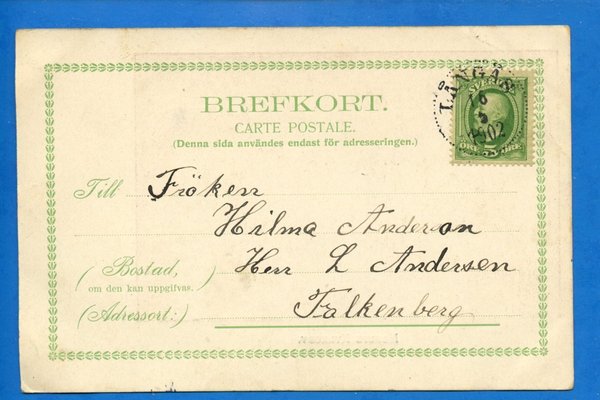 BREFKORT.
CARTE POSTALE.
(Denna sida användes endast för adresseringen.)
LÅNGÅS
1902
Till Fröken
Hilma Anderson
(Bostad,) Herr L Andersen
om den kan uppgifvas.
(Adressort:) Falkenberg